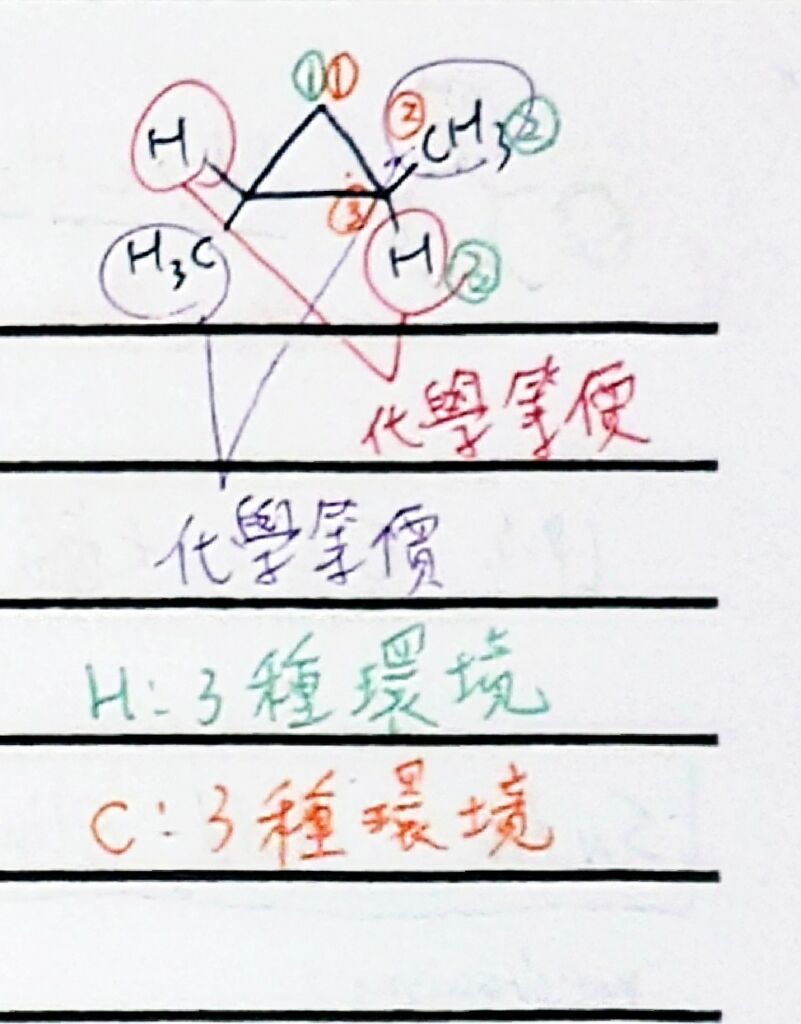 ①①
H ② CH₃ ②
③
H₃C H ②
化學等價
化學等價
H：3種環境
C：3種環境